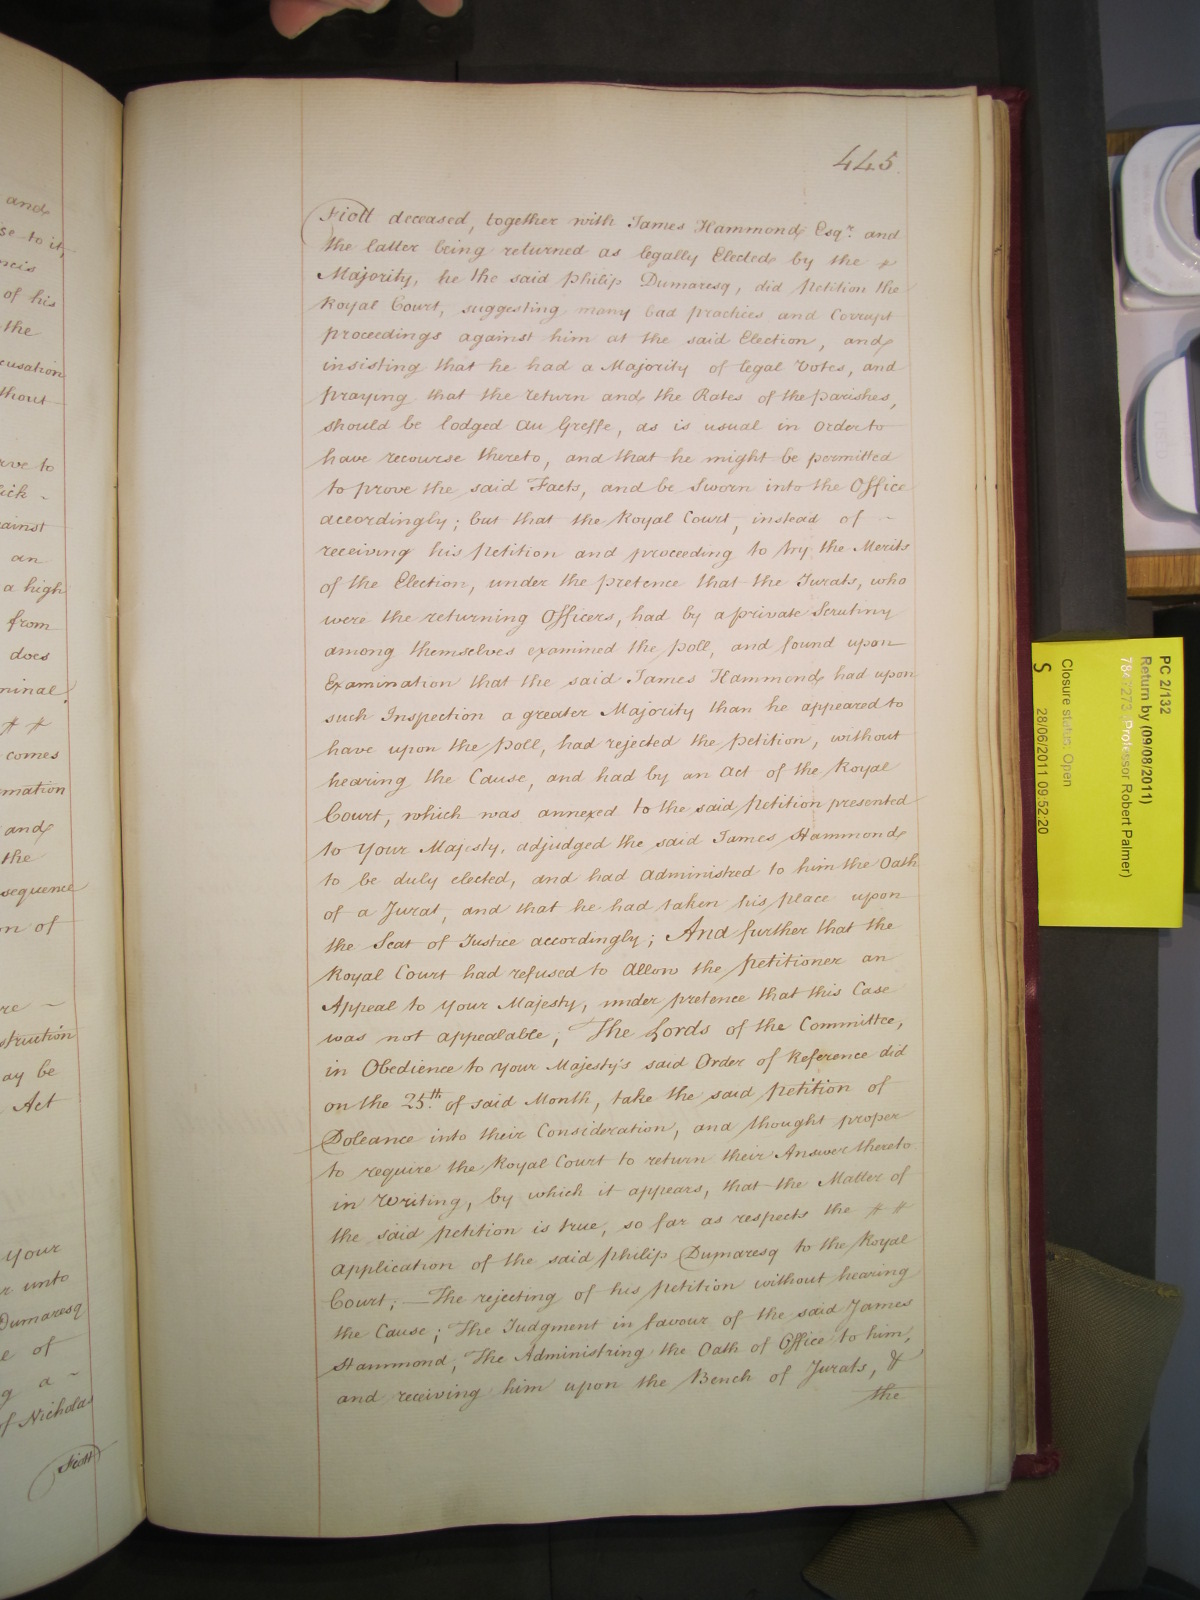 445
Fiott deceased, together with James Hammond Esqr. and
the latter being returned as legally Elected by the
Majority, he the said Philip Dumaresq, did Petition the
Royal Court, suggesting many bad practices and Corrupt
proceedings against him at the said Election, and
insisting that he had a Majority of legal Votes, and
praying that the return and the Rates of the parishes,
should be lodged au Greffe, as is usual in order to
have recourse thereto, and that he might be permitted
to prove the said Facts, and be Sworn into the Office
accordingly; but that the Royal Court, instead of
receiving his Petition and proceeding to try the Merits
of the Election, under the pretence that the Jurats, who
were the returning Officers, had by a private Scrutiny
among themselves examined the poll, and found upon
Examination that the said James Hammond had upon
such Inspection a greater Majority than he appeared to
have upon the Poll, had rejected the Petition, without
hearing the Cause, and had by an Act of the Royal
Court, which was annexed to the said Petition presented
to Your Majesty, adjudged the said James Hammond
to be duly elected, and had administred to him the Oath
of a Jurat, and that he had taken his place upon
the Seat of Justice accordingly; And further that the
Royal Court had refused to allow the Petitioner an
Appeal to Your Majesty, under pretence that this Case
was not appealable; The Lords of the Committee,
in Obedience to Your Majesty's said Order of Reference did
on the 25th. of said Month, take the said Petition of
Doleance into their Consideration, and thought proper
to require the Royal Court to return their Answer thereto
in Writing, by which it appears, that the Matter of
the said Petition is true, so far as respects the
application of the said Philip Dumaresq to the Royal
Court; — The rejecting of his Petition without hearing
the Cause; The Judgment in favour of the said James
Hammond, The Administring the Oath of Office to him,
and receiving him upon the Bench of Jurats, &
the
and
se to it,
ncis
of his
the
cusation
thout
rve to
lick -
ainst
an
a high
from
does
minal
comes
mation
and
the
sequence
on of
re ~
struction
ay be
Act
Your
r unto
Dumaresq
e of
g a ~
of Nicholas
Fiott
PC 2/132
Return by (09/08/2011)
Professor Robert Palmer)
Closure status: Open
S 28/06/2011 09:52:20